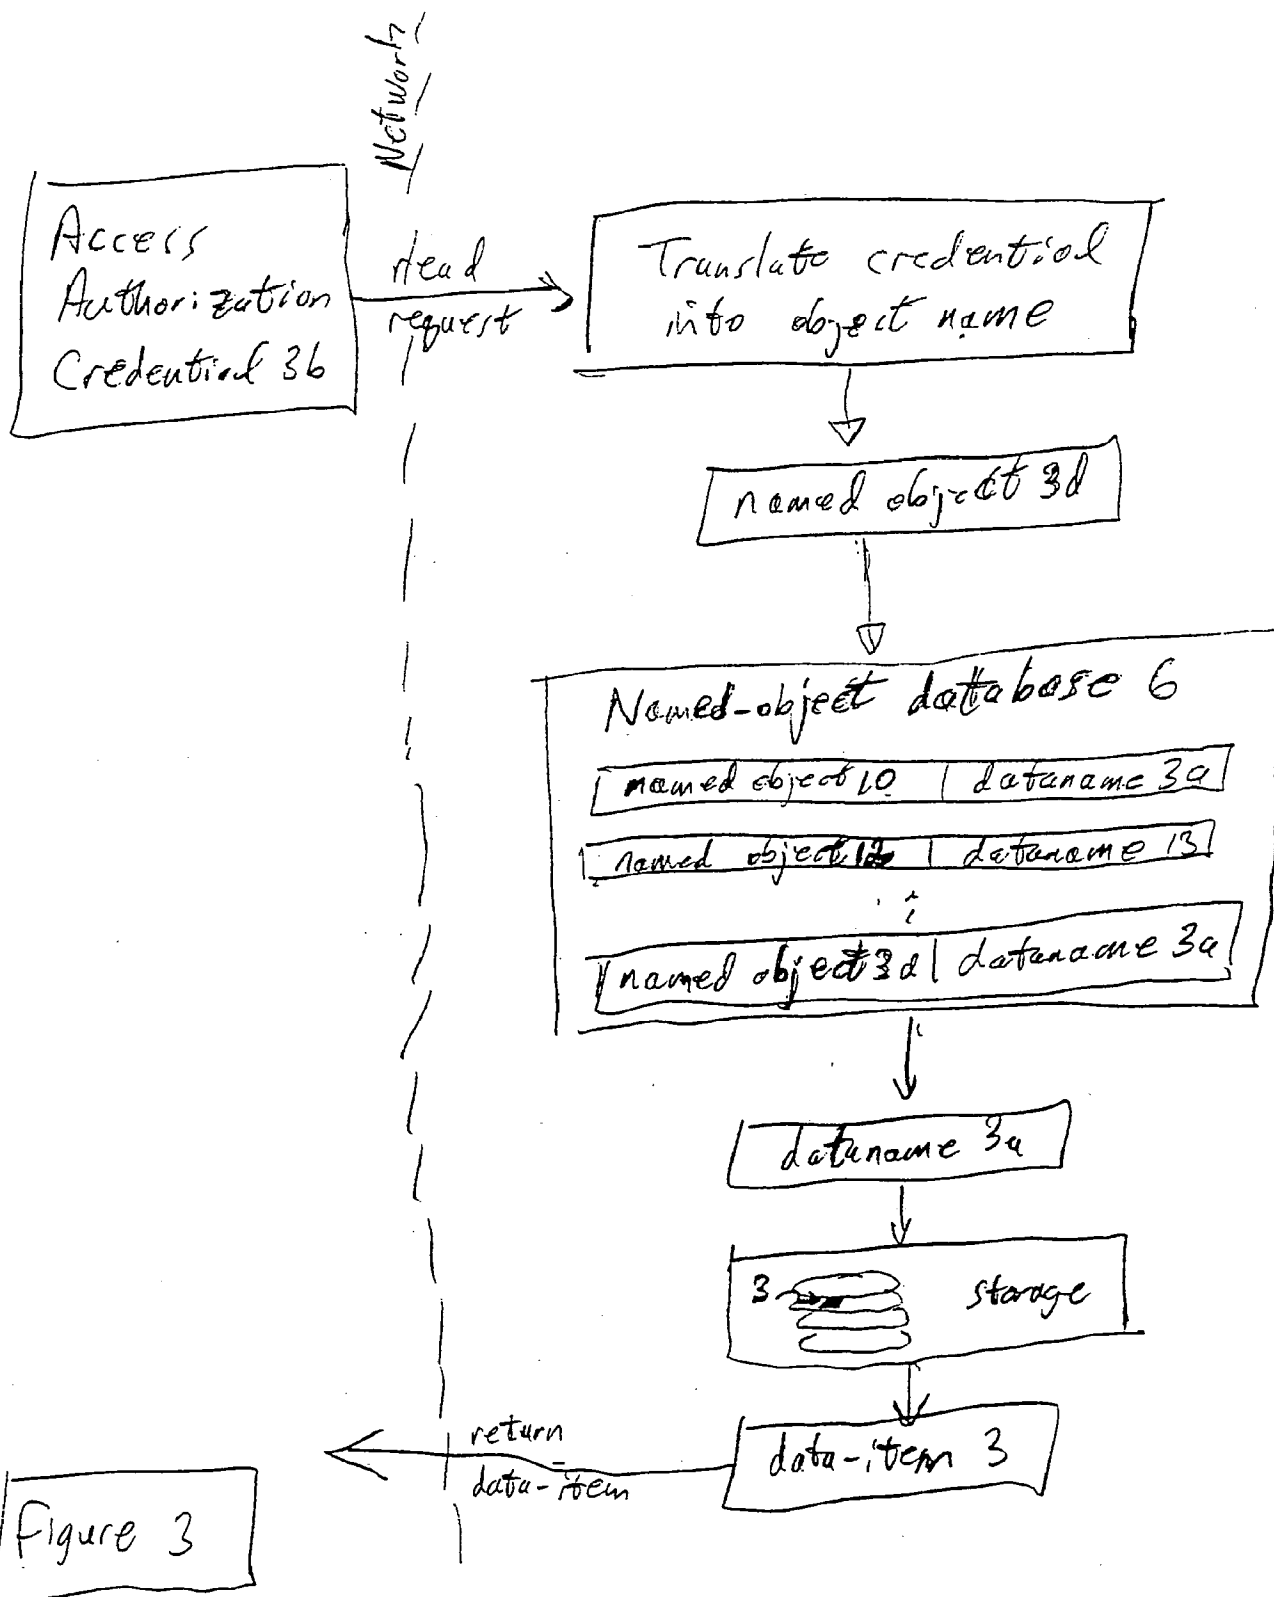 Network
Access
Authorization
Credential 3b
read
request
Translate credential
into object name
named object 3d
Named-object database 6
named object 10 | dataname 3a
named object 12 | dataname 13
named object 3d | dataname 3a
dataname 3a
3
storage
data-item 3
return
data-item
Figure 3